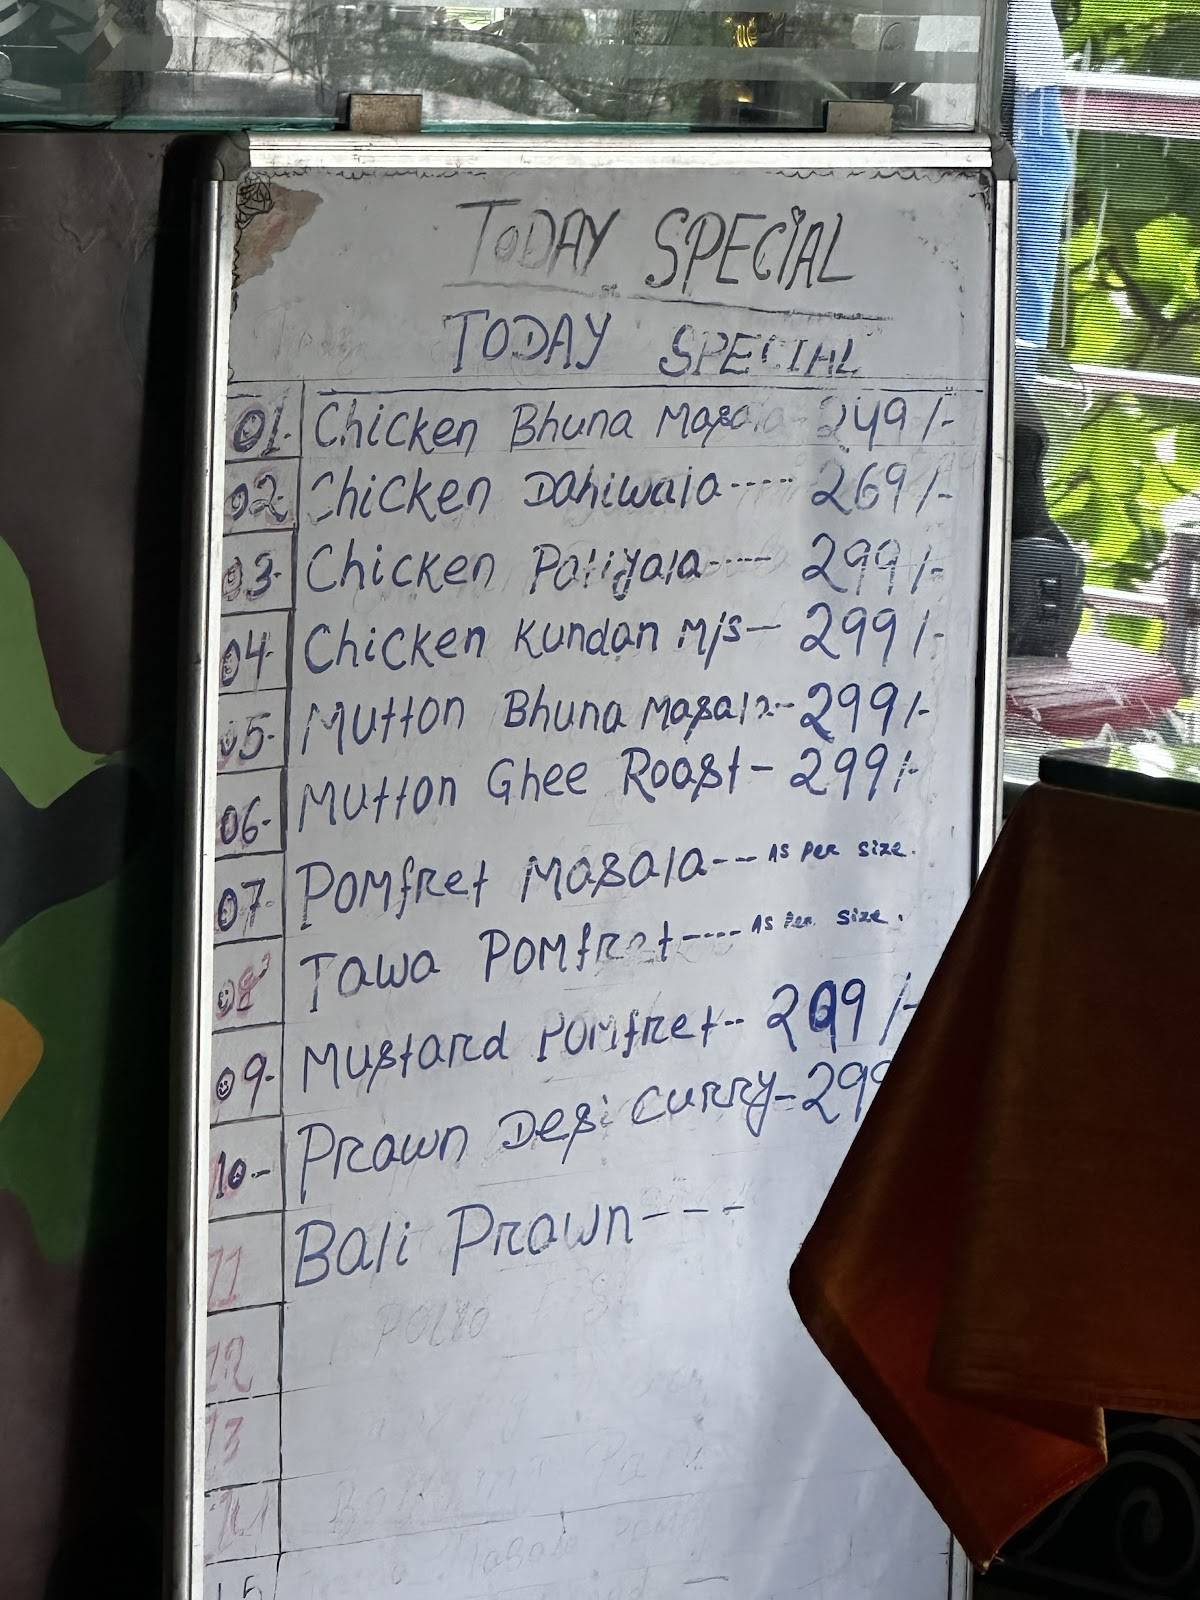 TODAY SPECIAL
TODAY SPECIAL
01- Chicken Bhuna Masala - 249/-
02- Chicken Dahiwala ----- 269/-
03- Chicken Patiyala ---- 299/-
04- Chicken Kundan M/s - 299/-
05- Mutton Bhuna Masala -- 299/-
06- Mutton Ghee Roast - 299/-
07- Pomfret Masala --- As Per size.
08 Tawa Pomfret ---- As Per size.
09- Mustard Pomfret -- 299/-
10- Prawn Desi Curry - 299
11 Bali Prawn ---
12
13
14
15